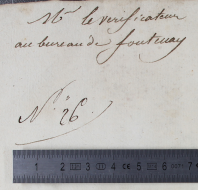 Mr le verificateur
au bureau de fontenay
No 26
1 2 3 4 5 6 7